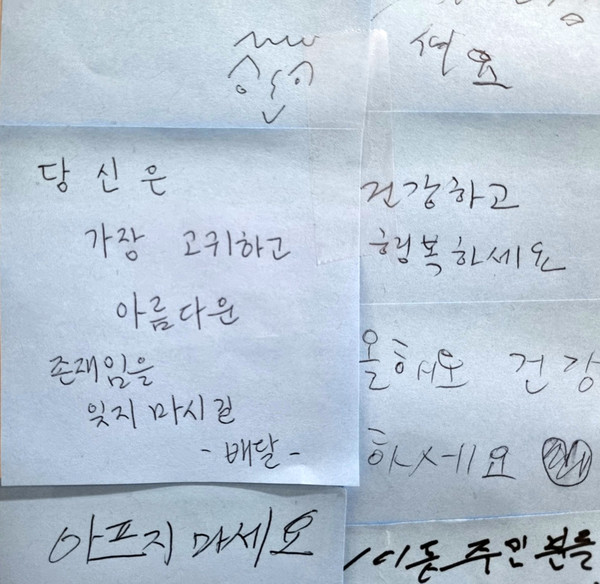 세요
당신은
가장 고귀하고
아름다운
존재임을
잊지 마시길
- 배달 -
건강하고
행복하세요
올해도 건강
하세요
아프지 마세요
주민분들